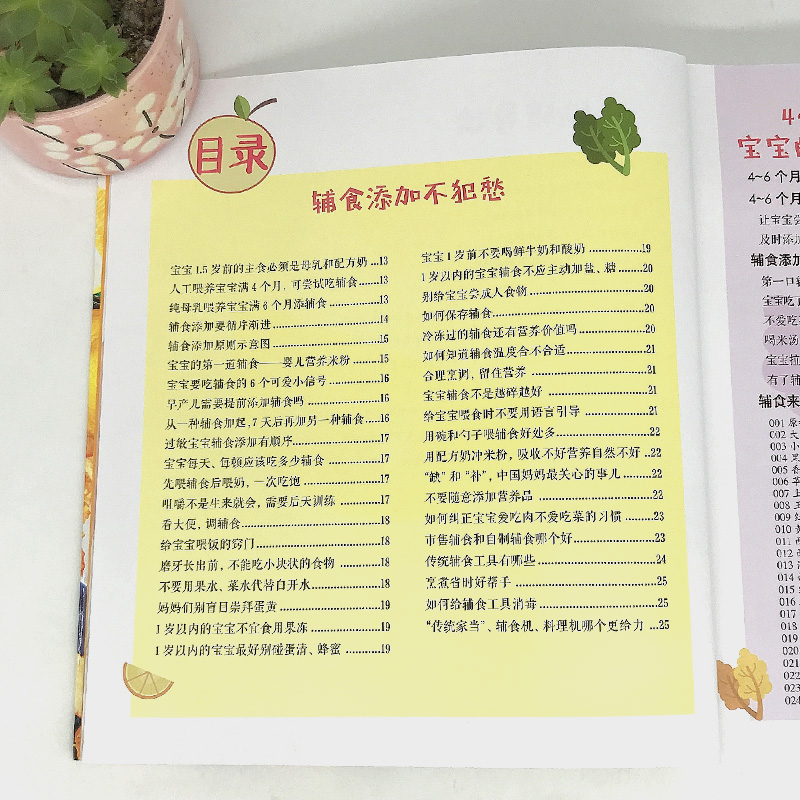 目录
辅食添加不犯愁
宝宝1.5岁前的主食必须是母乳和配方奶...13
人工喂养宝宝满4个月,可尝试吃辅食......13
纯母乳喂养宝宝满6个月添辅食..........13
辅食添加要循序渐进..........14
辅食添加原则示意图..........15
宝宝的第一道辅食——婴儿营养米粉......15
宝宝要吃辅食的6个可爱小信号..........16
早产儿需要提前添加辅食吗..........16
从一种辅食加起,7天后再加另一种辅食....16
过敏宝宝辅食添加有顺序..........17
宝宝每天、每顿应该吃多少辅食..........17
先喂辅食后喂奶,一次吃饱..........17
咀嚼不是生来就会,需要后天训练..........17
看大便,调辅食..........18
给宝宝喂饭的窍门..........18
磨牙长出前,不能吃小块状的食物..........18
不要用果水、菜水代替白开水..........18
妈妈们别盲目崇拜蛋黄..........19
1岁以内的宝宝不宜食用果冻..........19
1岁以内的宝宝最好别碰蛋清、蜂蜜..........19
宝宝1岁前不要喝鲜牛奶和酸奶..........19
1岁以内的宝宝辅食不应主动加盐、糖.......20
别给宝宝尝成人食物..........20
如何保存辅食..........20
冷冻过的辅食还有营养价值吗..........20
如何知道辅食温度合不合适..........21
合理烹调,留住营养..........21
宝宝辅食不是越碎越好..........21
给宝宝喂食时不要用语言引导..........21
用碗和勺子喂辅食好处多..........22
用配方奶冲米粉,吸收不好营养自然不好..22
“缺”和“补”,中国妈妈最关心的事儿.......22
不要随意添加营养品..........22
如何纠正宝宝爱吃肉不爱吃菜的习惯.......23
市售辅食和自制辅食哪个好..........23
传统辅食工具有哪些..........24
烹煮省时好帮手..........25
如何给辅食工具消毒..........25
“传统家当”、辅食机、料理机哪个更给力...25
宝宝
4~6个月
4~6个月
及时添加
辅食添加
第一口
宝宝吃
不爱吃
喝米汤
宝宝拉
有了辅
辅食来
001
002
003
004
005
006
007
008
009
010
011
012
013
014
015
016
017
018
019
020
021
022
023
024